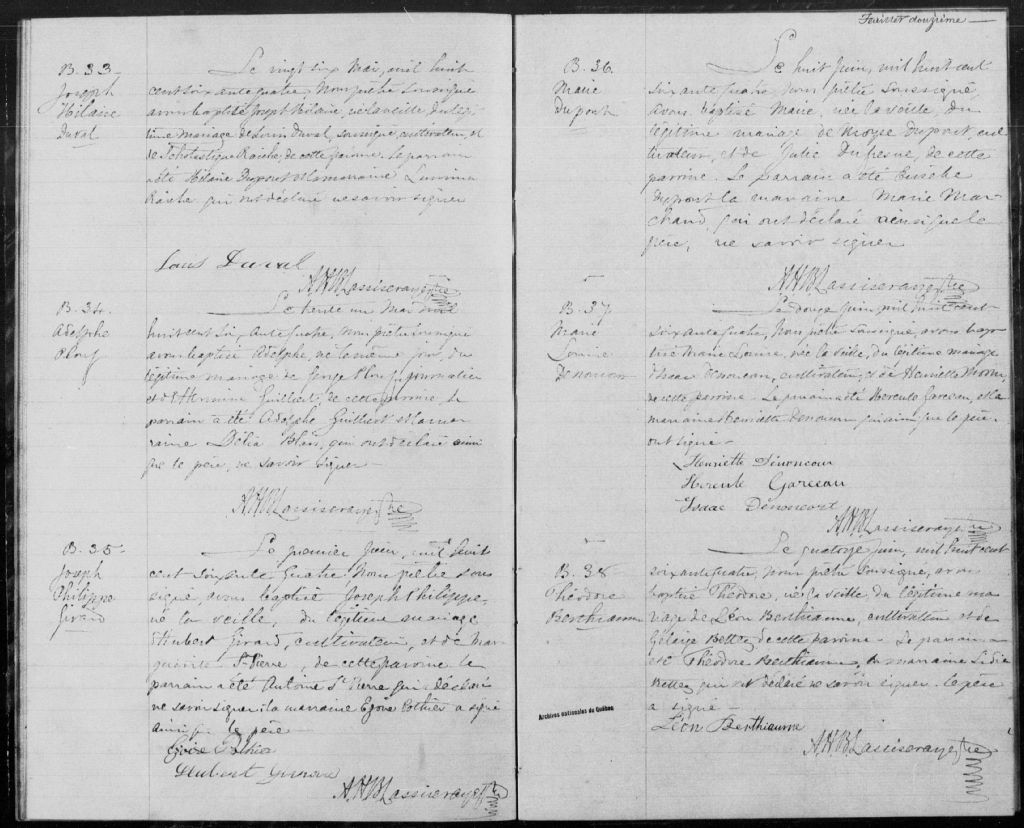 B. 33
Joseph
Hilaire
Duval
Le vingt six Mai, mil huit
cent soixante quatre, Nous prêtre soussigné
avons baptisé Joseph Hilaire, né la veille du légi
time mariage de Louis Duval, soussigné, cultivateur, et
de Scholastique Raiche, de cette paroisse. Le parrain
a été Hilaire Dupont et la marraine
Raiche qui ont déclaré ne savoir signer
Louis Duval
Ptre
B. 34
Adolphe
Plouf
Le trente un Mai mil
huit cent soixante quatre, Nous prêtre soussigné
avons baptisé Adolphe, né le même jour, du
légitime mariage de George Plouf, journalier
et d' Guilbert, de cette paroisse, le
parrain a été Adolphe Guilbert et la mar
raine Délia qui ont déclaré ainsi
que le père, ne savoir signer
Ptre
B. 35
Joseph
Philippe
Girard
Le premier Juin, mil huit
cent soixante quatre Nous prêtre sous
signé, avons baptisé Joseph Philippe,
né la veille, du légitime mariage
d'Hubert Girard, cultivateur, et de Mar
guerite St-Pierre, de cette paroisse le
parrain a été Antoine St Pierre qui a déclaré
ne savoir signer, la marraine Pothier a signé
ainsi que le père
Pothier
Hubert Girard
Ptre
Feuillet douzième
B. 36
Marie
Dupont
Le huit Juin, mil huit cent
soixante quatre nous prêtre soussigné
avons baptisé Marie, née la veille, du
légitime mariage de Moyse Dupont, cul
tivateur, et de Julie Dufresne, de cette
paroisse. Le parrain a été Eusèbe
Dupont la marraine Marie Mar-
chand, qui ont déclaré ainsi que le
père, ne savoir signer
Ptre
B. 37
Marie
Louise
Denoncour
Le douze Juin mil huit cent
soixante quatre, Nous prêtre soussigné, avons bap
tisé Marie Louise, née la veille, du légitime mariage
d'Isaac Denoncour, cultivateur, et de Henriette
de cette paroisse. Le parrain a été Hercule Garceau, et la
marraine Henriette Denoncour qui ainsi que le père
ont signé
Henriette Dénoncour
Hercule Garceau
Isaac Dénoncourt
Ptre
B. 38
Théodore
Berthiaume
Le quatorze Juin, mil huit cent
soixante quatre, Nous prêtre soussigné, avons
baptisé Théodore, né la veille, du légitime ma
riage de Léon Berthiaume, cultivateur et de
Bettez de cette paroisse. Le parrain a
été Théodore Berthiaume, la marraine Lidie
Bettez qui ont déclaré ne savoir signer. le père
a signé
Léon Berthiaume
Ptre
Archives nationales du Québec